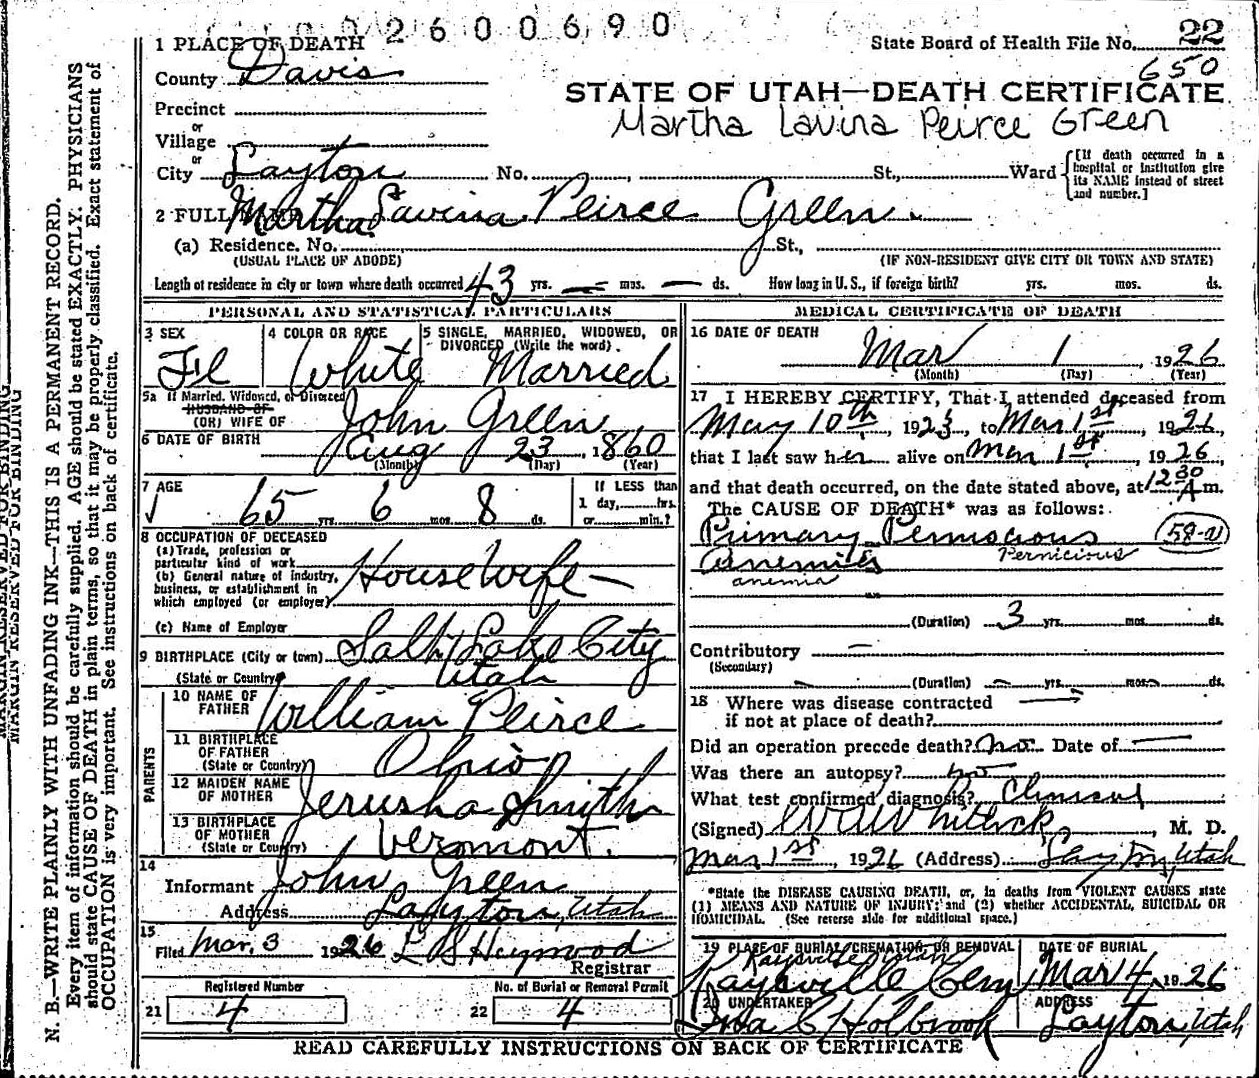 0 0 2 6 0 0 6 9 0
State Board of Health File No. 22
650
1 PLACE OF DEATH
County Davis
STATE OF UTAH—DEATH CERTIFICATE
Martha Lavina Peirce Green
Precinct
or
Village
or
City Layton No. , St., Ward [If death occurred in a hospital or institution give its NAME instead of street and number.]
2 FULL NAME Martha Lavina Peirce Green.
(a) Residence. No. St.,
(USUAL PLACE OF ABODE) (IF NON-RESIDENT GIVE CITY OR TOWN AND STATE)
Length of residence in city or town where death occurred 43 yrs. — mos. — ds. How long in U. S., if foreign birth? yrs. mos. ds.
PERSONAL AND STATISTICAL PARTICULARS
3 SEX
Fl
4 COLOR OR RACE
White
5 SINGLE, MARRIED, WIDOWED, OR
DIVORCED (Write the word).
Married
5a If Married, Widowed, or Divorced
HUSBAND OF
(OR) WIFE OF John Green
6 DATE OF BIRTH
Aug 23, 1860
(Month) (Day) (Year)
7 AGE
65 yrs. 6 mos. 8 ds.
If LESS than
1 day, hrs.
or min.?
8 OCCUPATION OF DECEASED
(a) Trade, profession or
particular kind of work
(b) General nature of industry,
business, or establishment in
which employed (or employer)
House Wife —
(c) Name of Employer
9 BIRTHPLACE (City or town) Salt Lake City
(State or Country) Utah
PARENTS
10 NAME OF
FATHER William Peirce
11 BIRTHPLACE
OF FATHER
(State or Country) Ohio
12 MAIDEN NAME
OF MOTHER Jerusha Smith
13 BIRTHPLACE
OF MOTHER
(State or Country) Vermont.
14
Informant John Green
Address Layton, Utah
15
Filed Mar. 3 1926 L B Heywood
Registrar
Registered Number
21 4
No. of Burial or Removal Permit
22 4
MEDICAL CERTIFICATE OF DEATH
16 DATE OF DEATH
Mar 1, 1926
(Month) (Day) (Year)
17 I HEREBY CERTIFY, That I attended deceased from
May 10th, 1923, to Mar 1st, 1926
that I last saw her alive on Mar 1st, 1926,
and that death occurred, on the date stated above, at 12 30 A m.
The CAUSE OF DEATH* was as follows:
Primary Pernicious 58-a
Anemia Pernicious
anemia
(Duration) 3 yrs. mos. ds.
Contributory —
(Secondary)
(Duration) — yrs. — mos. — ds.
18 Where was disease contracted
if not at place of death?
Did an operation precede death? no. Date of —
Was there an autopsy? no
What test confirmed diagnosis? Clinical
(Signed) Whitlock, M. D.
Mar 1st, 1926 (Address) Layton, Utah
*State the DISEASE CAUSING DEATH, or, in deaths from VIOLENT CAUSES state
(1) MEANS AND NATURE OF INJURY; and (2) whether ACCIDENTAL, SUICIDAL OR
HOMICIDAL. (See reverse side for additional space.)
19 PLACE OF BURIAL, CREMATION, OR REMOVAL
Kaysville Utah
Kaysville Cem
DATE OF BURIAL
Mar 4, 1926
20 UNDERTAKER
Ina C Holbrook
ADDRESS
Layton, Utah
READ CAREFULLY INSTRUCTIONS ON BACK OF CERTIFICATE
MARGIN RESERVED FOR BINDING
MARGIN RESERVED FOR BINDING
N. B.—WRITE PLAINLY WITH UNFADING INK—THIS IS A PERMANENT RECORD.
Every item of information should be carefully supplied. AGE should be stated EXACTLY. PHYSICIANS
should state CAUSE OF DEATH in plain terms, so that it may be properly classified. Exact statement of
OCCUPATION is very important. See instructions on back of certificate.